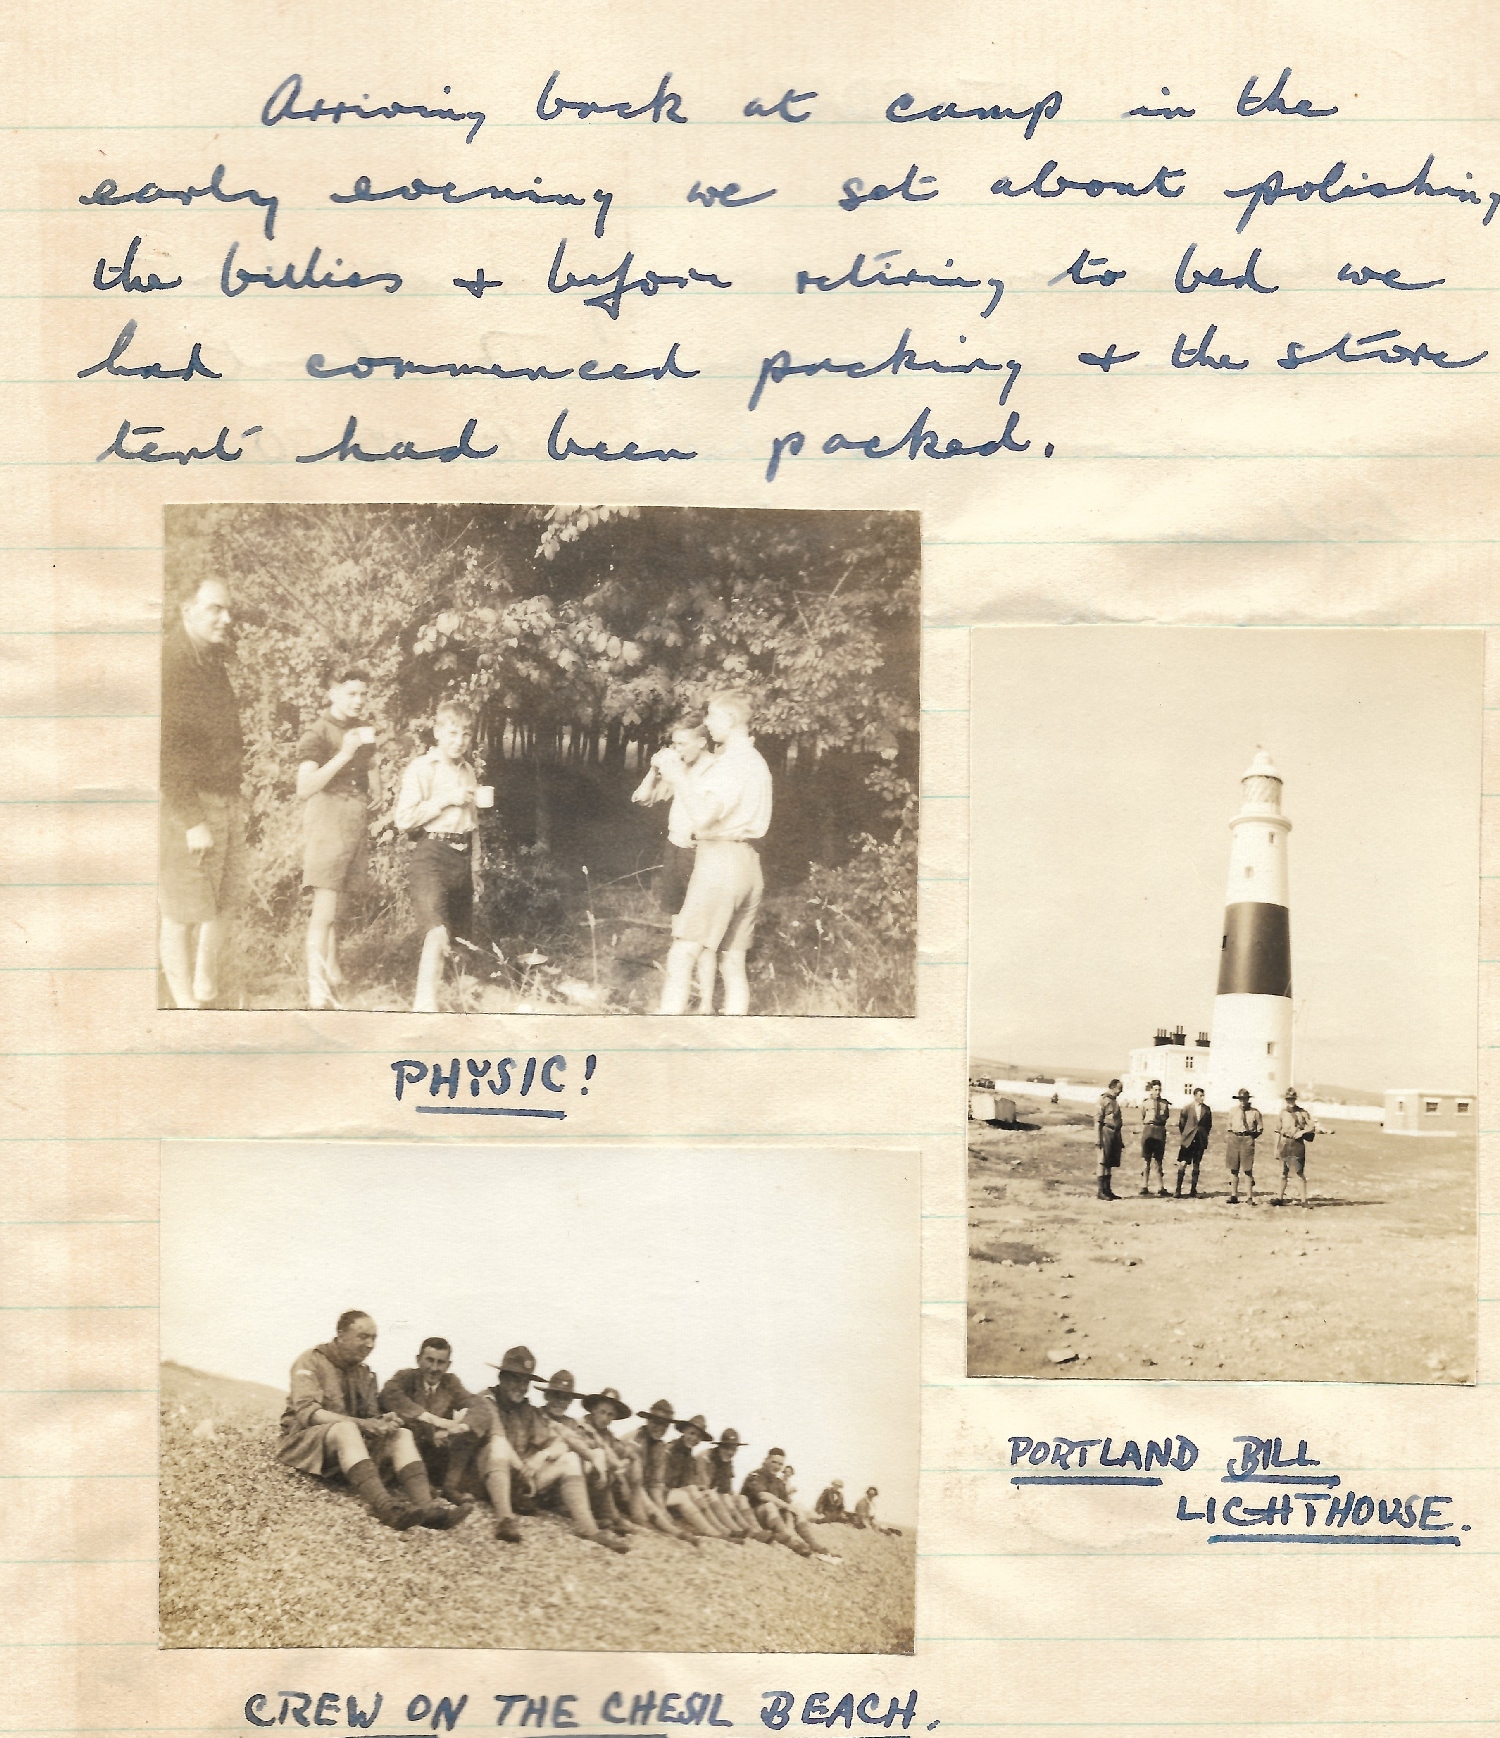 Arriving back at camp in the
early evening we set about polishing
the billies & before retiring to bed we
had commenced packing & the store
tent had been packed.
PHYSIC!
PORTLAND BILL
LIGHTHOUSE.
CREW ON THE CHESIL BEACH.